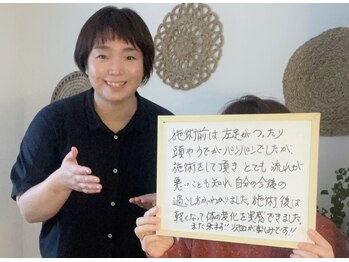 施術前は左足がつったり
頭やうでがパンパンでしたが、
施術をして頂き とても 流れが
悪いことも知れ、自分の今後の
過ごし方がわかりました。施術後は
軽くなって体の変化を実感できました。
また来ます!! 次回が楽しみです!!